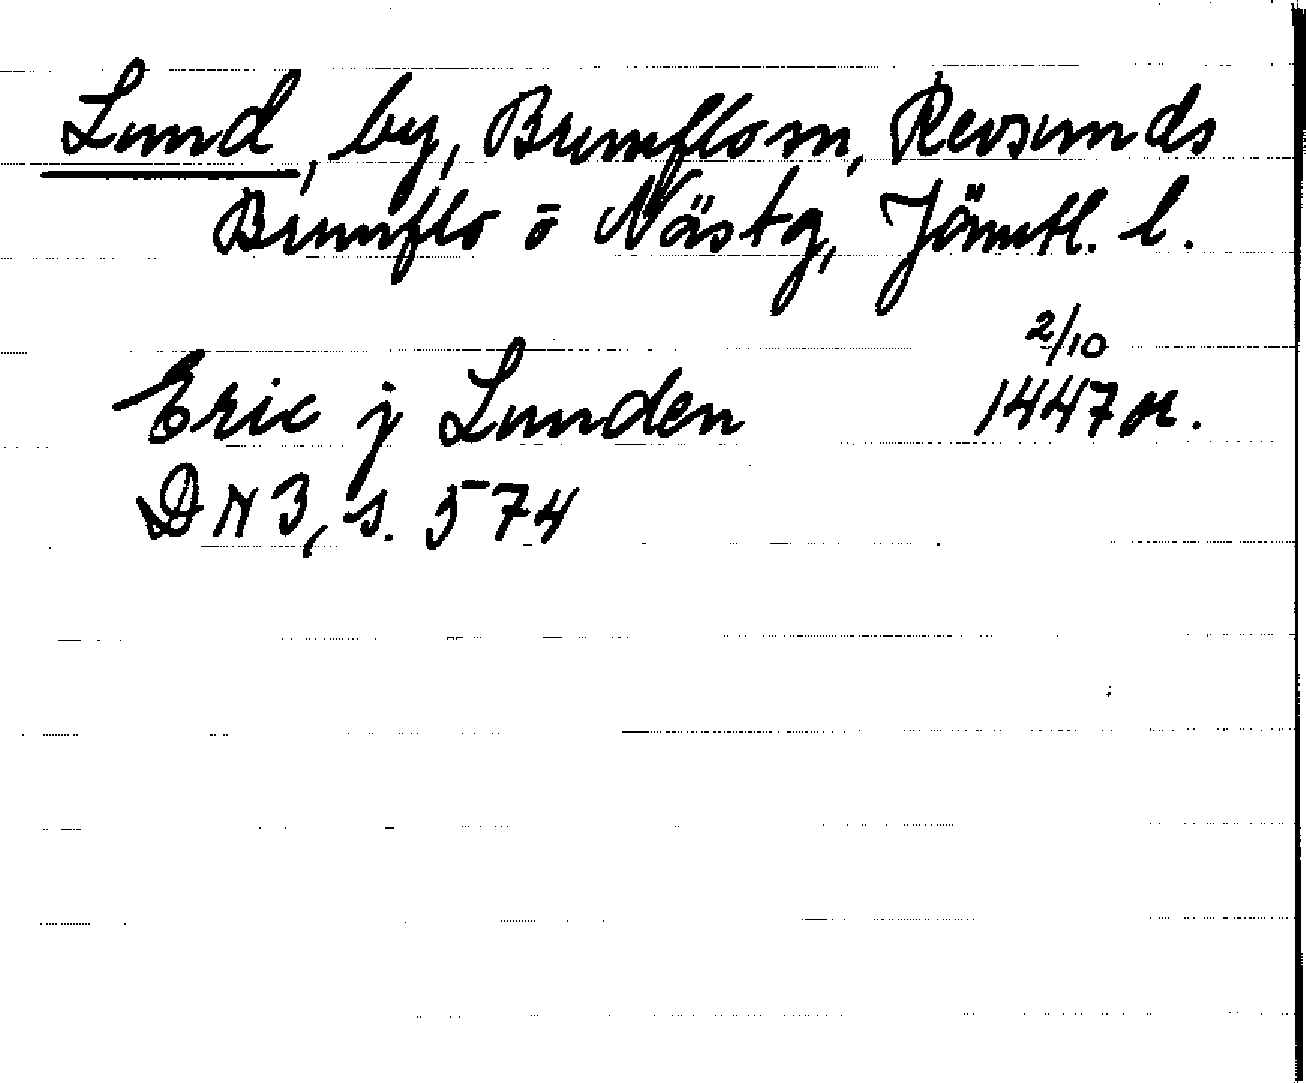 Lund, by, Brunflo sn, Revsunds
Brunflo o Näs tg, Jämtl. l.
2/10
Eric j Lunden 1447 or.
DN 3, s. 574